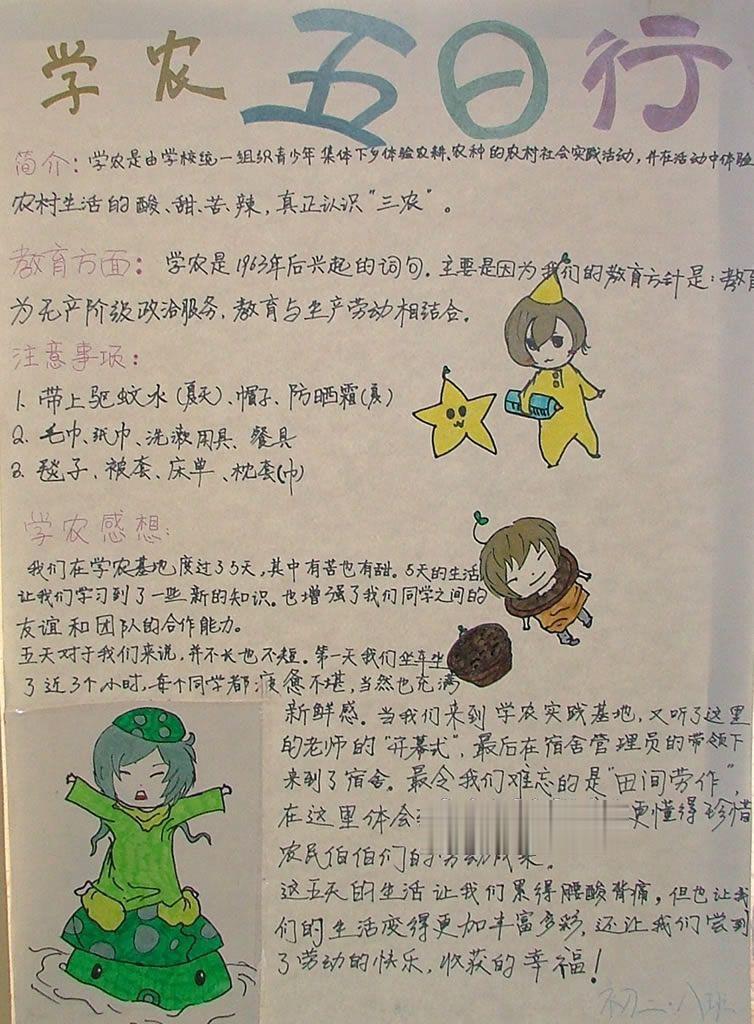 学农五日行
简介：学农是由学校统一组织青少年集体下乡体验农耕、农种的农村社会实践活动，并在活动中体验
农村生活的酸、甜、苦、辣，真正认识"三农"。
教育方面：学农是1963年后兴起的词句。主要是因为我们的教育方针是：教育
为无产阶级政治服务，教育与生产劳动相结合。
注意事项：
1. 带上驱蚊水（夏天）、帽子、防晒霜（夏）
2. 毛巾、纸巾、洗漱用具、餐具
3. 毯子、被套、床单、枕套（巾）
学农感想：
我们在学农基地度过了5天，其中有苦也有甜。5天的生活
让我们学习到了一些新的知识。也增强了我们同学之间的
友谊和团队的合作能力。
五天对于我们来说，并不长也不短。第一天我们坐车坐
了近3个小时，每个同学都疲惫不堪，当然也充满
新鲜感。当我们来到学农实践基地，又听了这里
的老师的"开幕式"，最后在宿舍管理员的带领下
来到了宿舍。最令我们难忘的是"田间劳作"，
在这里体会 更懂得珍惜
农民伯伯们的劳动成果。
这五天的生活让我们累得腰酸背痛，但也让我
们的生活变得更加丰富多彩，还让我们尝到
了劳动的快乐，收获的幸福！
初二·八班